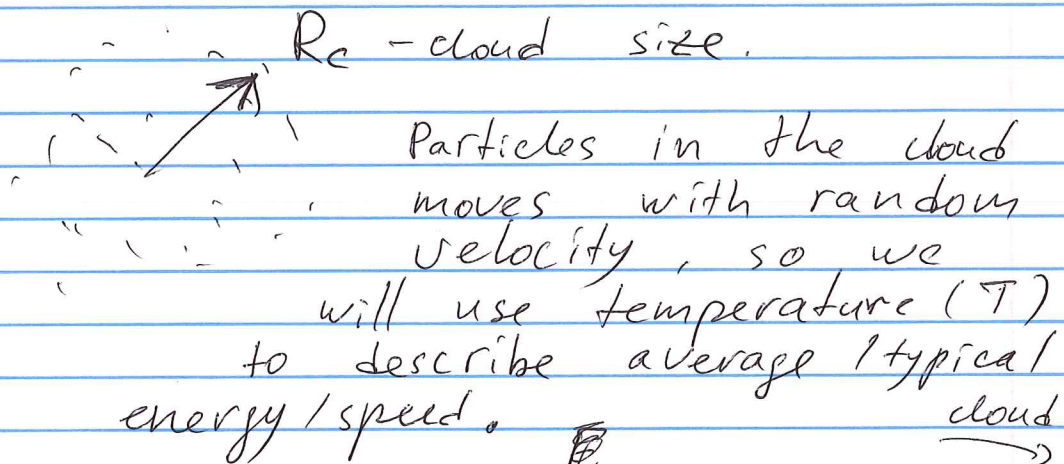 Rc - cloud size.
Particles in the cloud
moves with random
velocity, so we
will use temperature (T)
to describe average / typical
energy / speed.
cloud